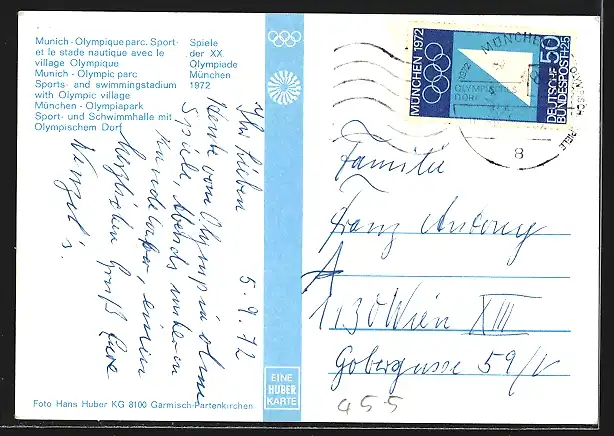 Munich - Olympique parc. Sport-
et le stade nautique avec le
village Olympique
Munich - Olympic parc
Sports- and swimmingstadium
with Olympic village
München - Olympiapark
Sport- und Schwimmhalle mit
Olympischem Dorf
Spiele
der XX
Olympiade
München
1972
5.9.72
Ihr Lieben
Heute vom Olympia ohne
Spiele, Abends
einen
herzlichen Gruß Eure
Foto Hans Huber KG 8100 Garmisch-Partenkirchen
EINE
HUBER
KARTE
MÜNCHEN 1972
DEUTSCHE
BUNDESPOST
50
+25
MÜNCHEN
OLYMPISCHES
DORF
8
Familie
Franz Antony
A
1130 Wien XIII
Gobergasse 59/V
455